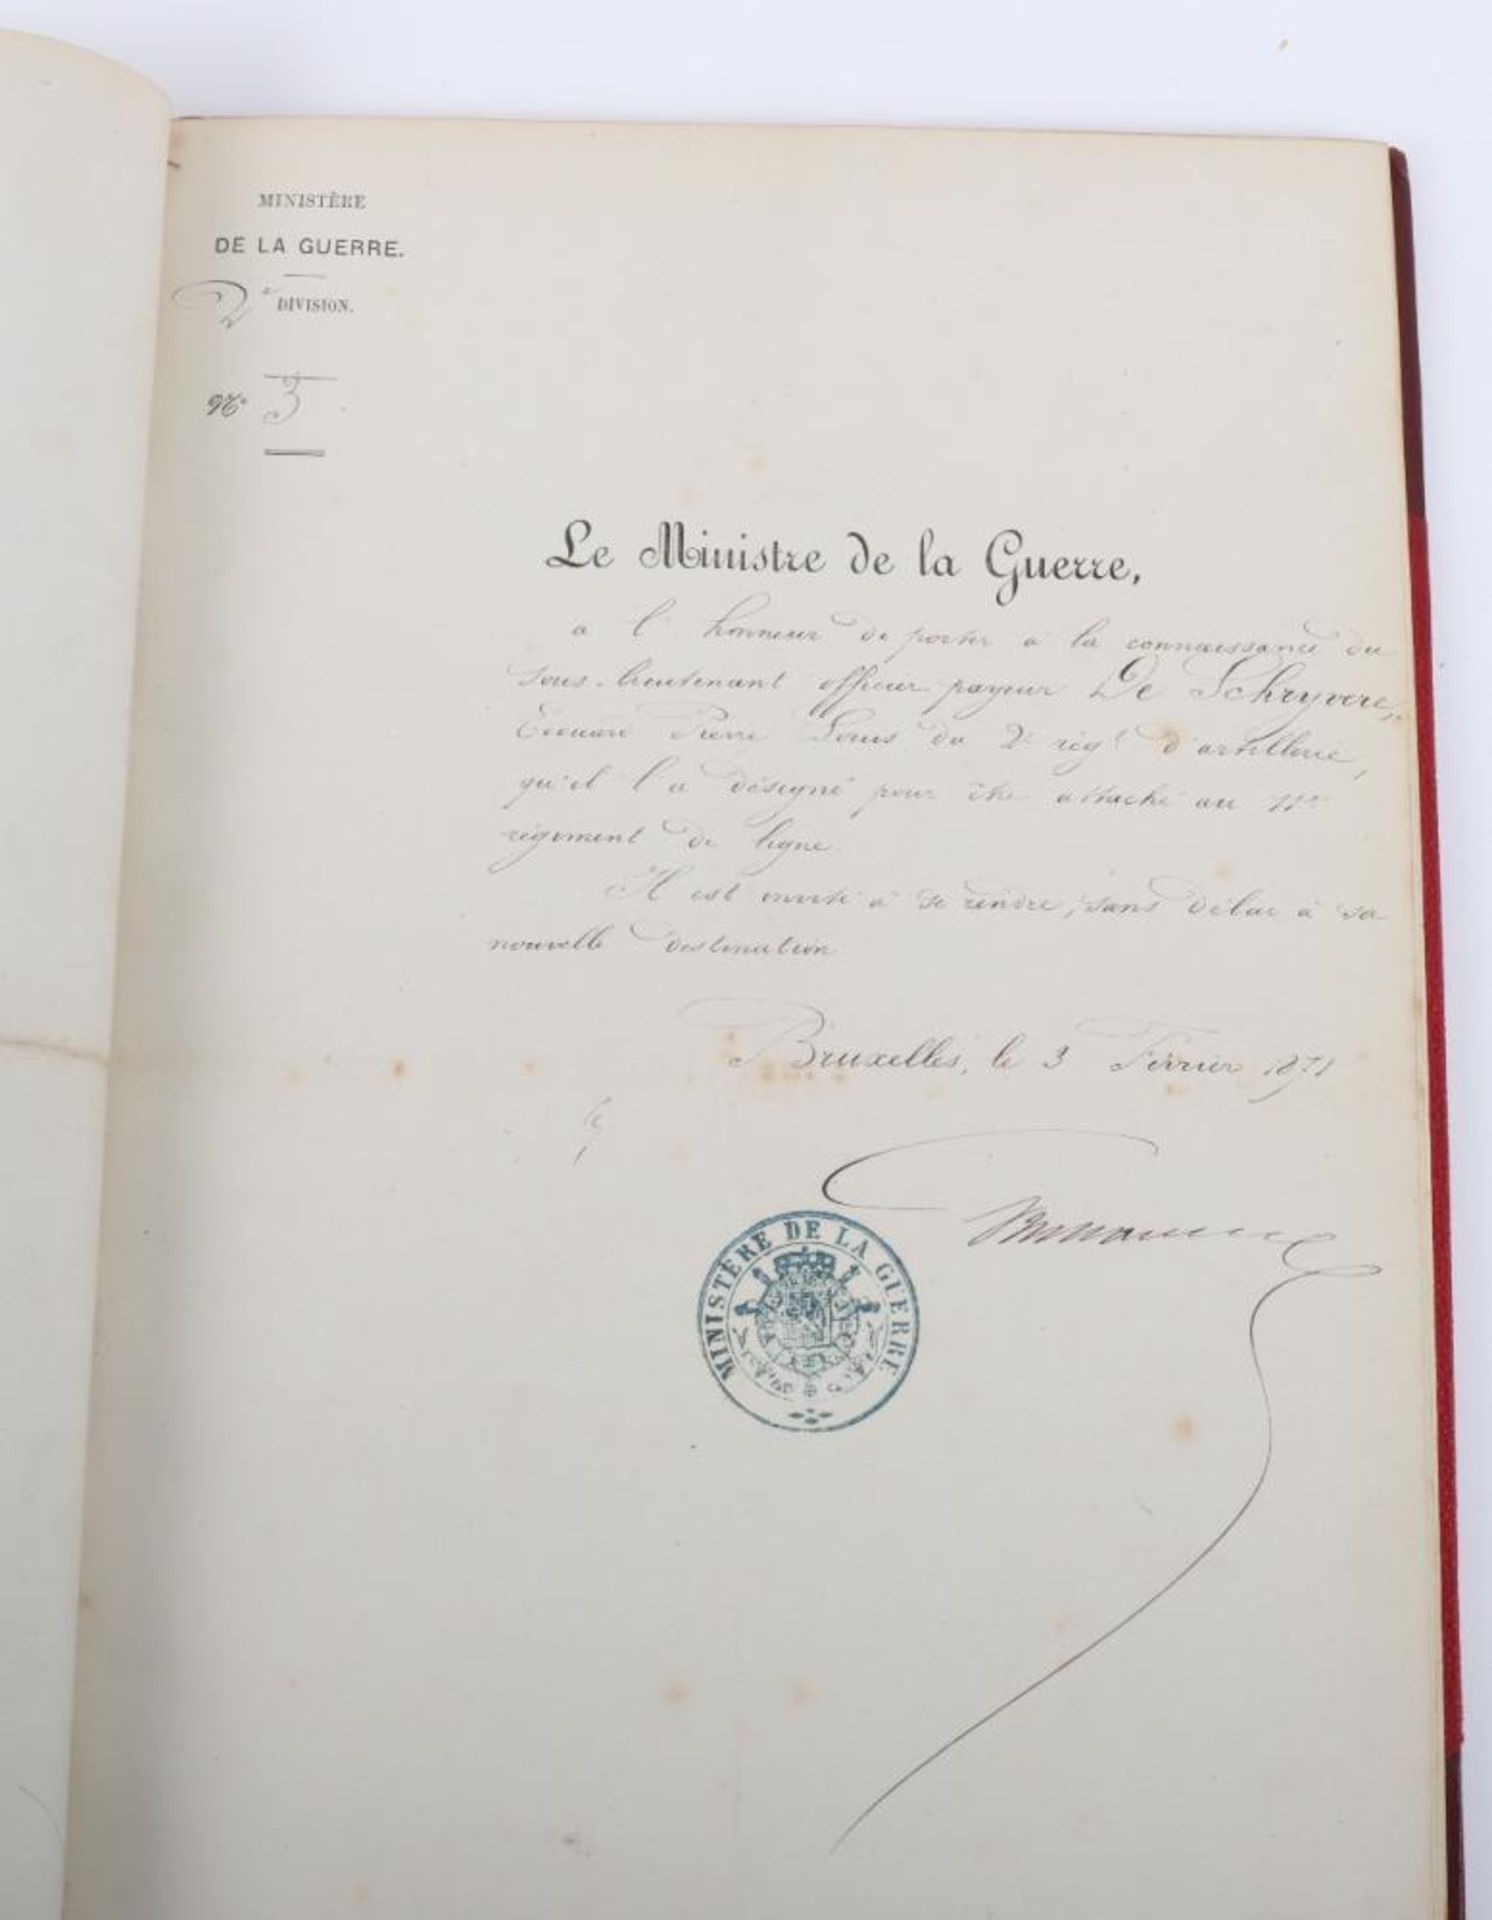 MINISTÈRE
DE LA GUERRE.
2e DIVISION.
No 3
Le Ministre de la Guerre,
a l'honneur de porter à la connaissance du
sous-lieutenant officier payeur De Schryvere,
Edouard Pierre Louis du 2e régt d'artillerie,
qu'il l'a désigné pour être attaché au 11me
régiment de ligne
Il est invité à se rendre, sans délai à sa
nouvelle destination
Bruxelles, le 3 Février 1871
MINISTÈRE DE LA GUERRE